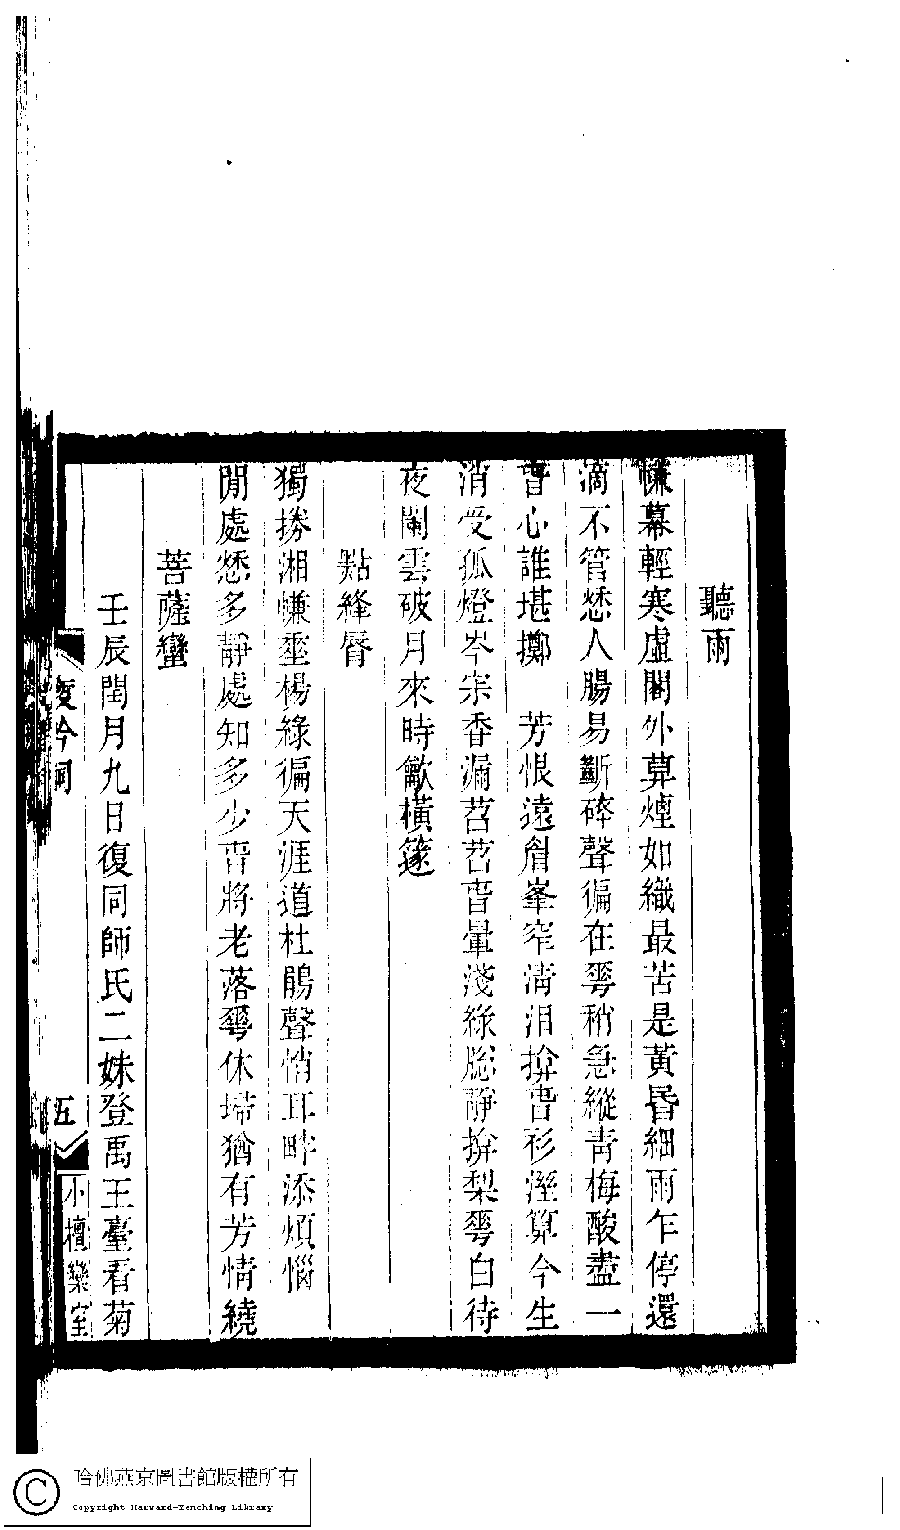 聽雨
㡘幕輕寒虛閣外草煙如織最苦是黃昏細雨乍停還
滴不管愁人腸易斷碎聲徧在琴稍急縱青梅酸盡一
春心誰堪擲　芳恨遠眉峯窄清淚揜春衫溼算今生
消受孤燈岑寂香漏苕苕春暈淺綠牕靜揜梨蕚白待
夜闌雲破月來時歗橫篴
點絳脣
獨捲湘㡘垂楊綠徧天涯道杜鵑聲悄耳畔添煩惱
閒處愁多靜處知多少春將老落蕚休埽猶有芳情繞
菩薩蠻
壬辰閏月九日復同師氏二妹登禹王臺看菊
吟詞
五
小檀欒室
哈佛燕京圖書館版權所有
Copyright Harvard-Yenching Library